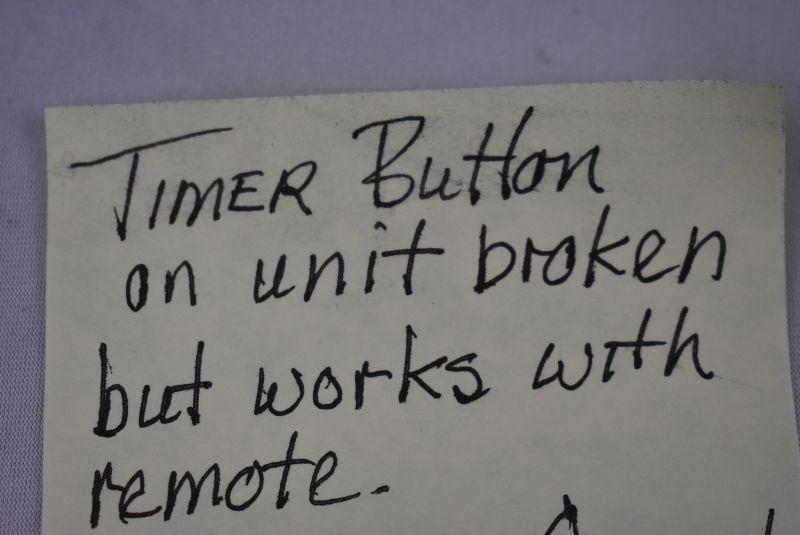 TIMER Button
on unit broken
but works with
remote.